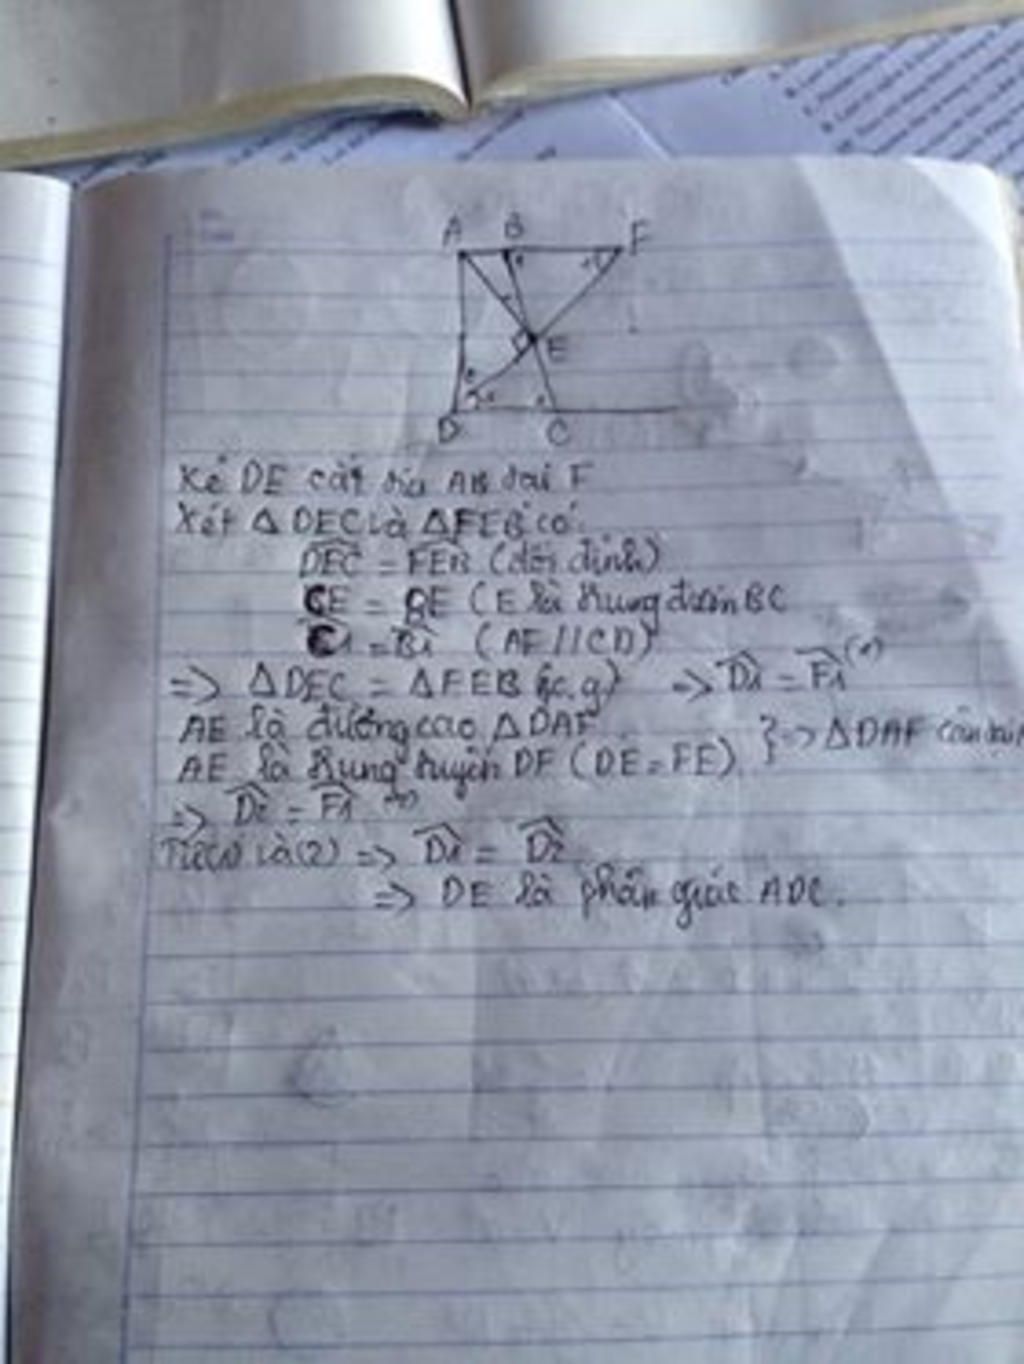 A B F
E
D C
Kẻ DE cắt tia AB tại F
Xét Δ DEC và ΔFEB có:
DEC = FEB (đối đỉnh)
CE = BE (E là trung điểm BC
C1 = B1 (AF//CD)
=> ΔDEC = ΔFEB (g.c.g) => D1 = F1 (1)
AE là đường cao ΔDAF
AE là trung tuyến DF (DE=FE) } => ΔDAF cân tại
=> D2 = F1 (2)
Từ(1) và(2) => D1 = D2
=> DE là phân giác ADC.